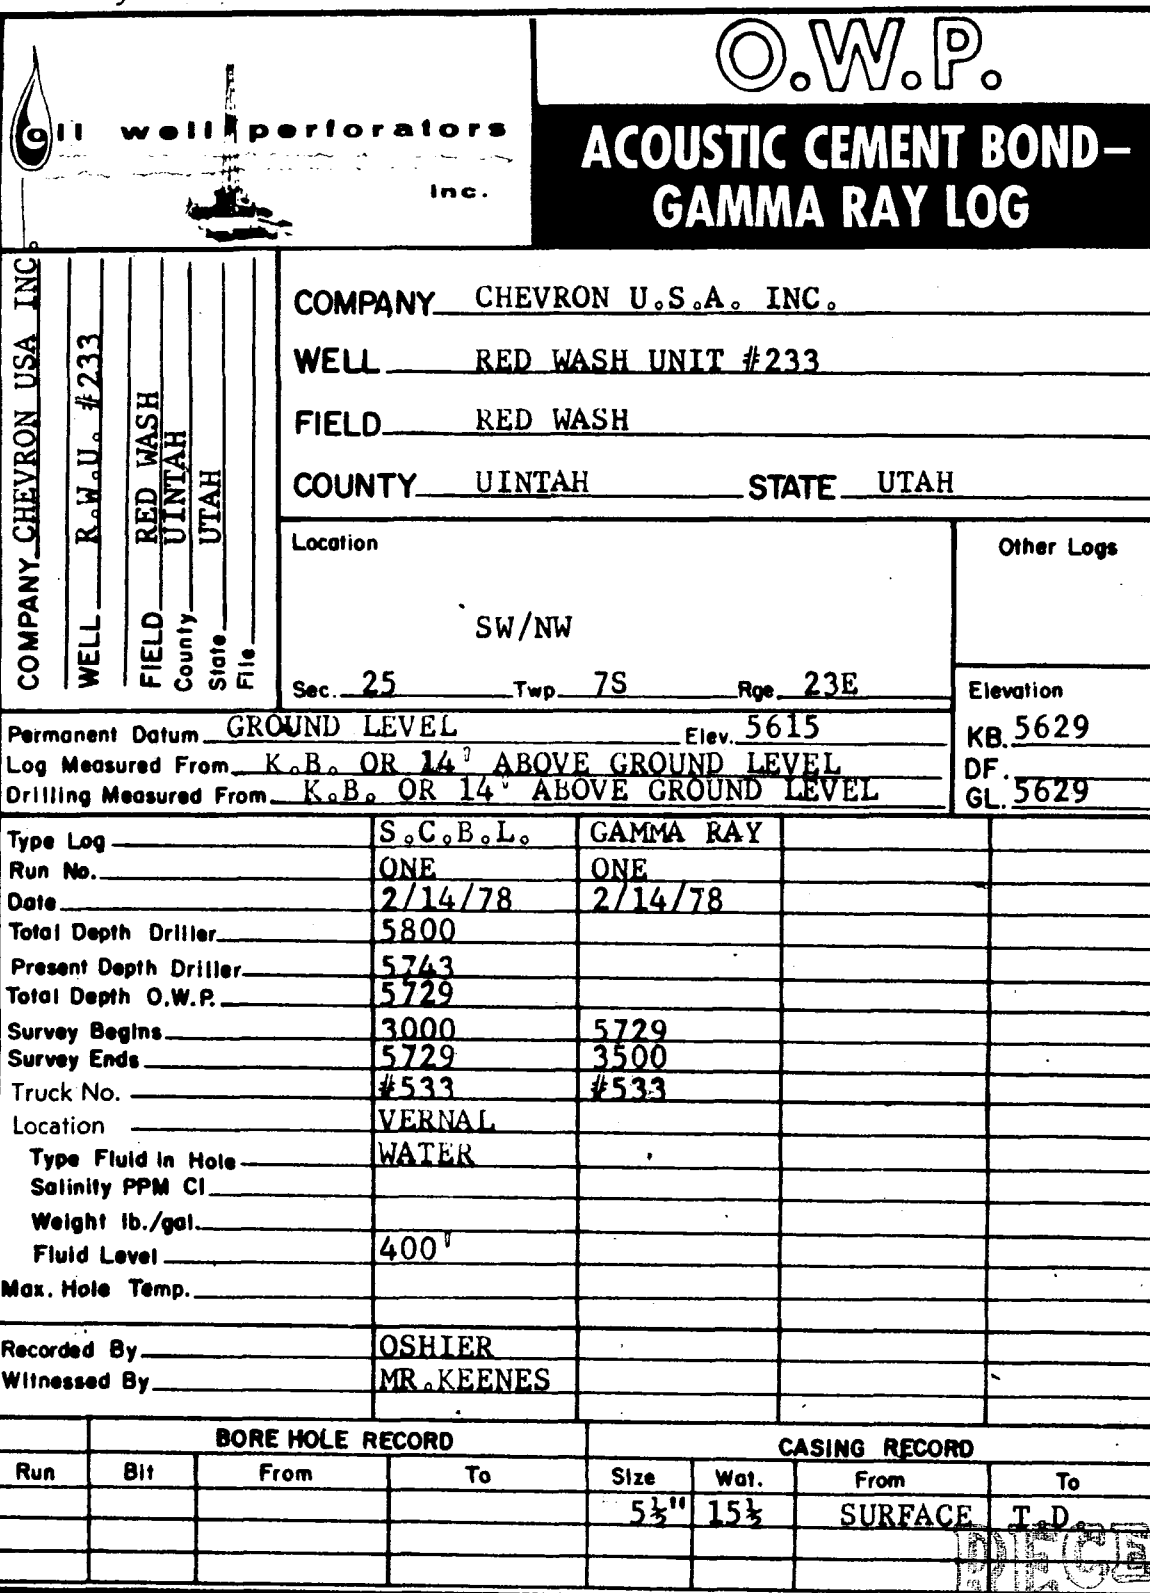 O.W.P.
oil well perforators
Inc.
ACOUSTIC CEMENT BOND–
GAMMA RAY LOG
COMPANY CHEVRON USA INC.
WELL R.W.U. #233
FIELD RED WASH
County UINTAH
State UTAH
File
COMPANY CHEVRON U.S.A. INC.
WELL RED WASH UNIT #233
FIELD RED WASH
COUNTY UINTAH STATE UTAH
Location
SW/NW
Sec. 25 Twp. 7S Rge. 23E
Other Logs
Permanent Datum GROUND LEVEL Elev. 5615
Log Measured From K.B. OR 14' ABOVE GROUND LEVEL
Drilling Measured From K.B. OR 14' ABOVE GROUND LEVEL
Elevation
KB. 5629
DF.
GL. 5629
Type Log S.C.B.L. GAMMA RAY
Run No. ONE ONE
Date 2/14/78 2/14/78
Total Depth Driller 5800
Present Depth Driller 5743
Total Depth O.W.P. 5729
Survey Begins 3000 5729
Survey Ends 5729 3500
Truck No. #533 #533
Location VERNAL
Type Fluid in Hole WATER
Salinity PPM Cl
Weight lb./gal.
Fluid Level 400'
Max. Hole Temp.
Recorded By OSHIER
Witnessed By MR.KEENES
BORE HOLE RECORD CASING RECORD
Run Bit From To Size Wat. From To
5½" 15½ SURFACE T.D.